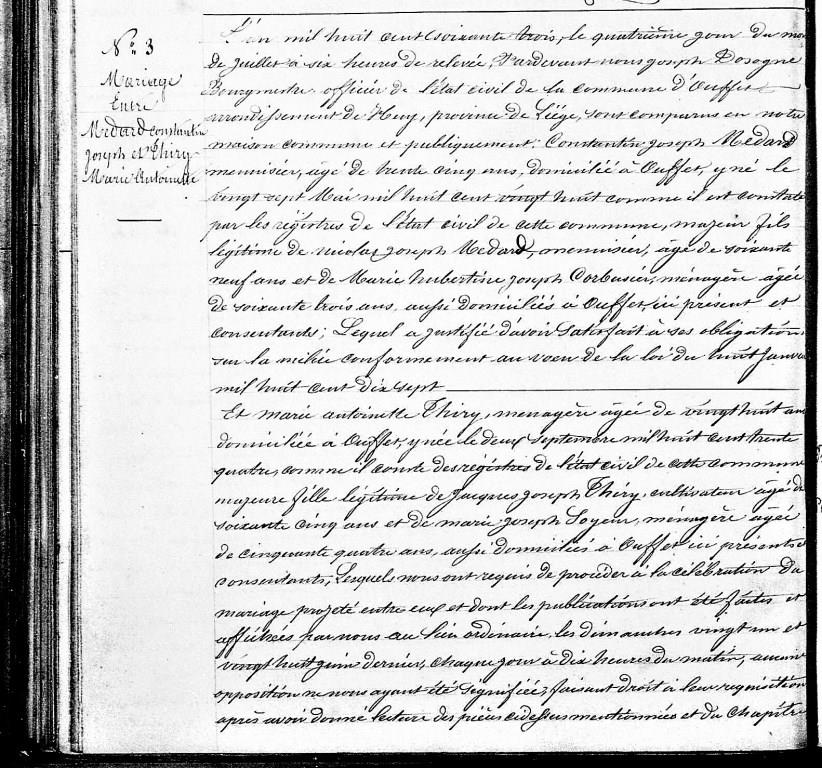 N° 3
Mariage
Entre
Medard constantin
joseph et Thiry
Marie Antoinette
L'an mil huit cent soixante trois, le quatrième jour du mois
de juillet à six heures de relevée, Pardevant nous joseph Dosogne
Bourgmestre officier de l'état civil de la commune d'Ouffet
arrondissement de Huy, province de Liége, sont comparus en notre
maison commune et publiquement; Constantin joseph Medard
menuisier, âgé de trente cinq ans, domicilié à Ouffet, y né le
vingt sept Mai mil huit cent vingt huit comme il est constaté
par les régistres de l'état civil de cette commune, majeur fils
légitime de nicolas joseph Medard, menuisier, âgé de soixante
neuf ans et de Marie hubertine joseph Corbusier, ménagère âgée
de soixante trois ans, aussi domiciliés à Ouffet, ici présent et
consentants; Lequel a justifié d'avoir satisfait à ses obligations
sur la milice conformement au voeu de la loi du huit Janvier
mil huit cent dix sept
Et marie antoinette Thiry, menagère âgée de vingt huit ans
domiciliée à Ouffet, y née le deux Septembre mil huit cent trente
quatre, comme il conste des régistres de l'état civil de cette commune
majeure fille légitime de Jacques joseph Thiry, cultivateur âgé de
soixante cinq ans et de marie joseph Soyeur, ménagère âgée
de cinquante quatre ans, aussi domiciliés à Ouffet, ici présents et
consentants, Lesquels nous ont requis de procéder à la célébration du
mariage projeté entre eux et dont les publications ont été faites et
affichées par nous au lieu ordinaire, les dimanches vingt un et
vingt huit juin dernier, chaque jour à dix heures du matin, aucune
opposition ne nous ayant été signifiée, faisant droit à leur requisition
après avoir donné lecture des pièces cidessus mentionnées et du chapitre